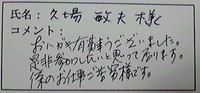 氏名: 久場 敏夫 様
コメント:
おはがき有難うございました。
是非参加したいと思っております。
係のお仕事ご苦労様です。